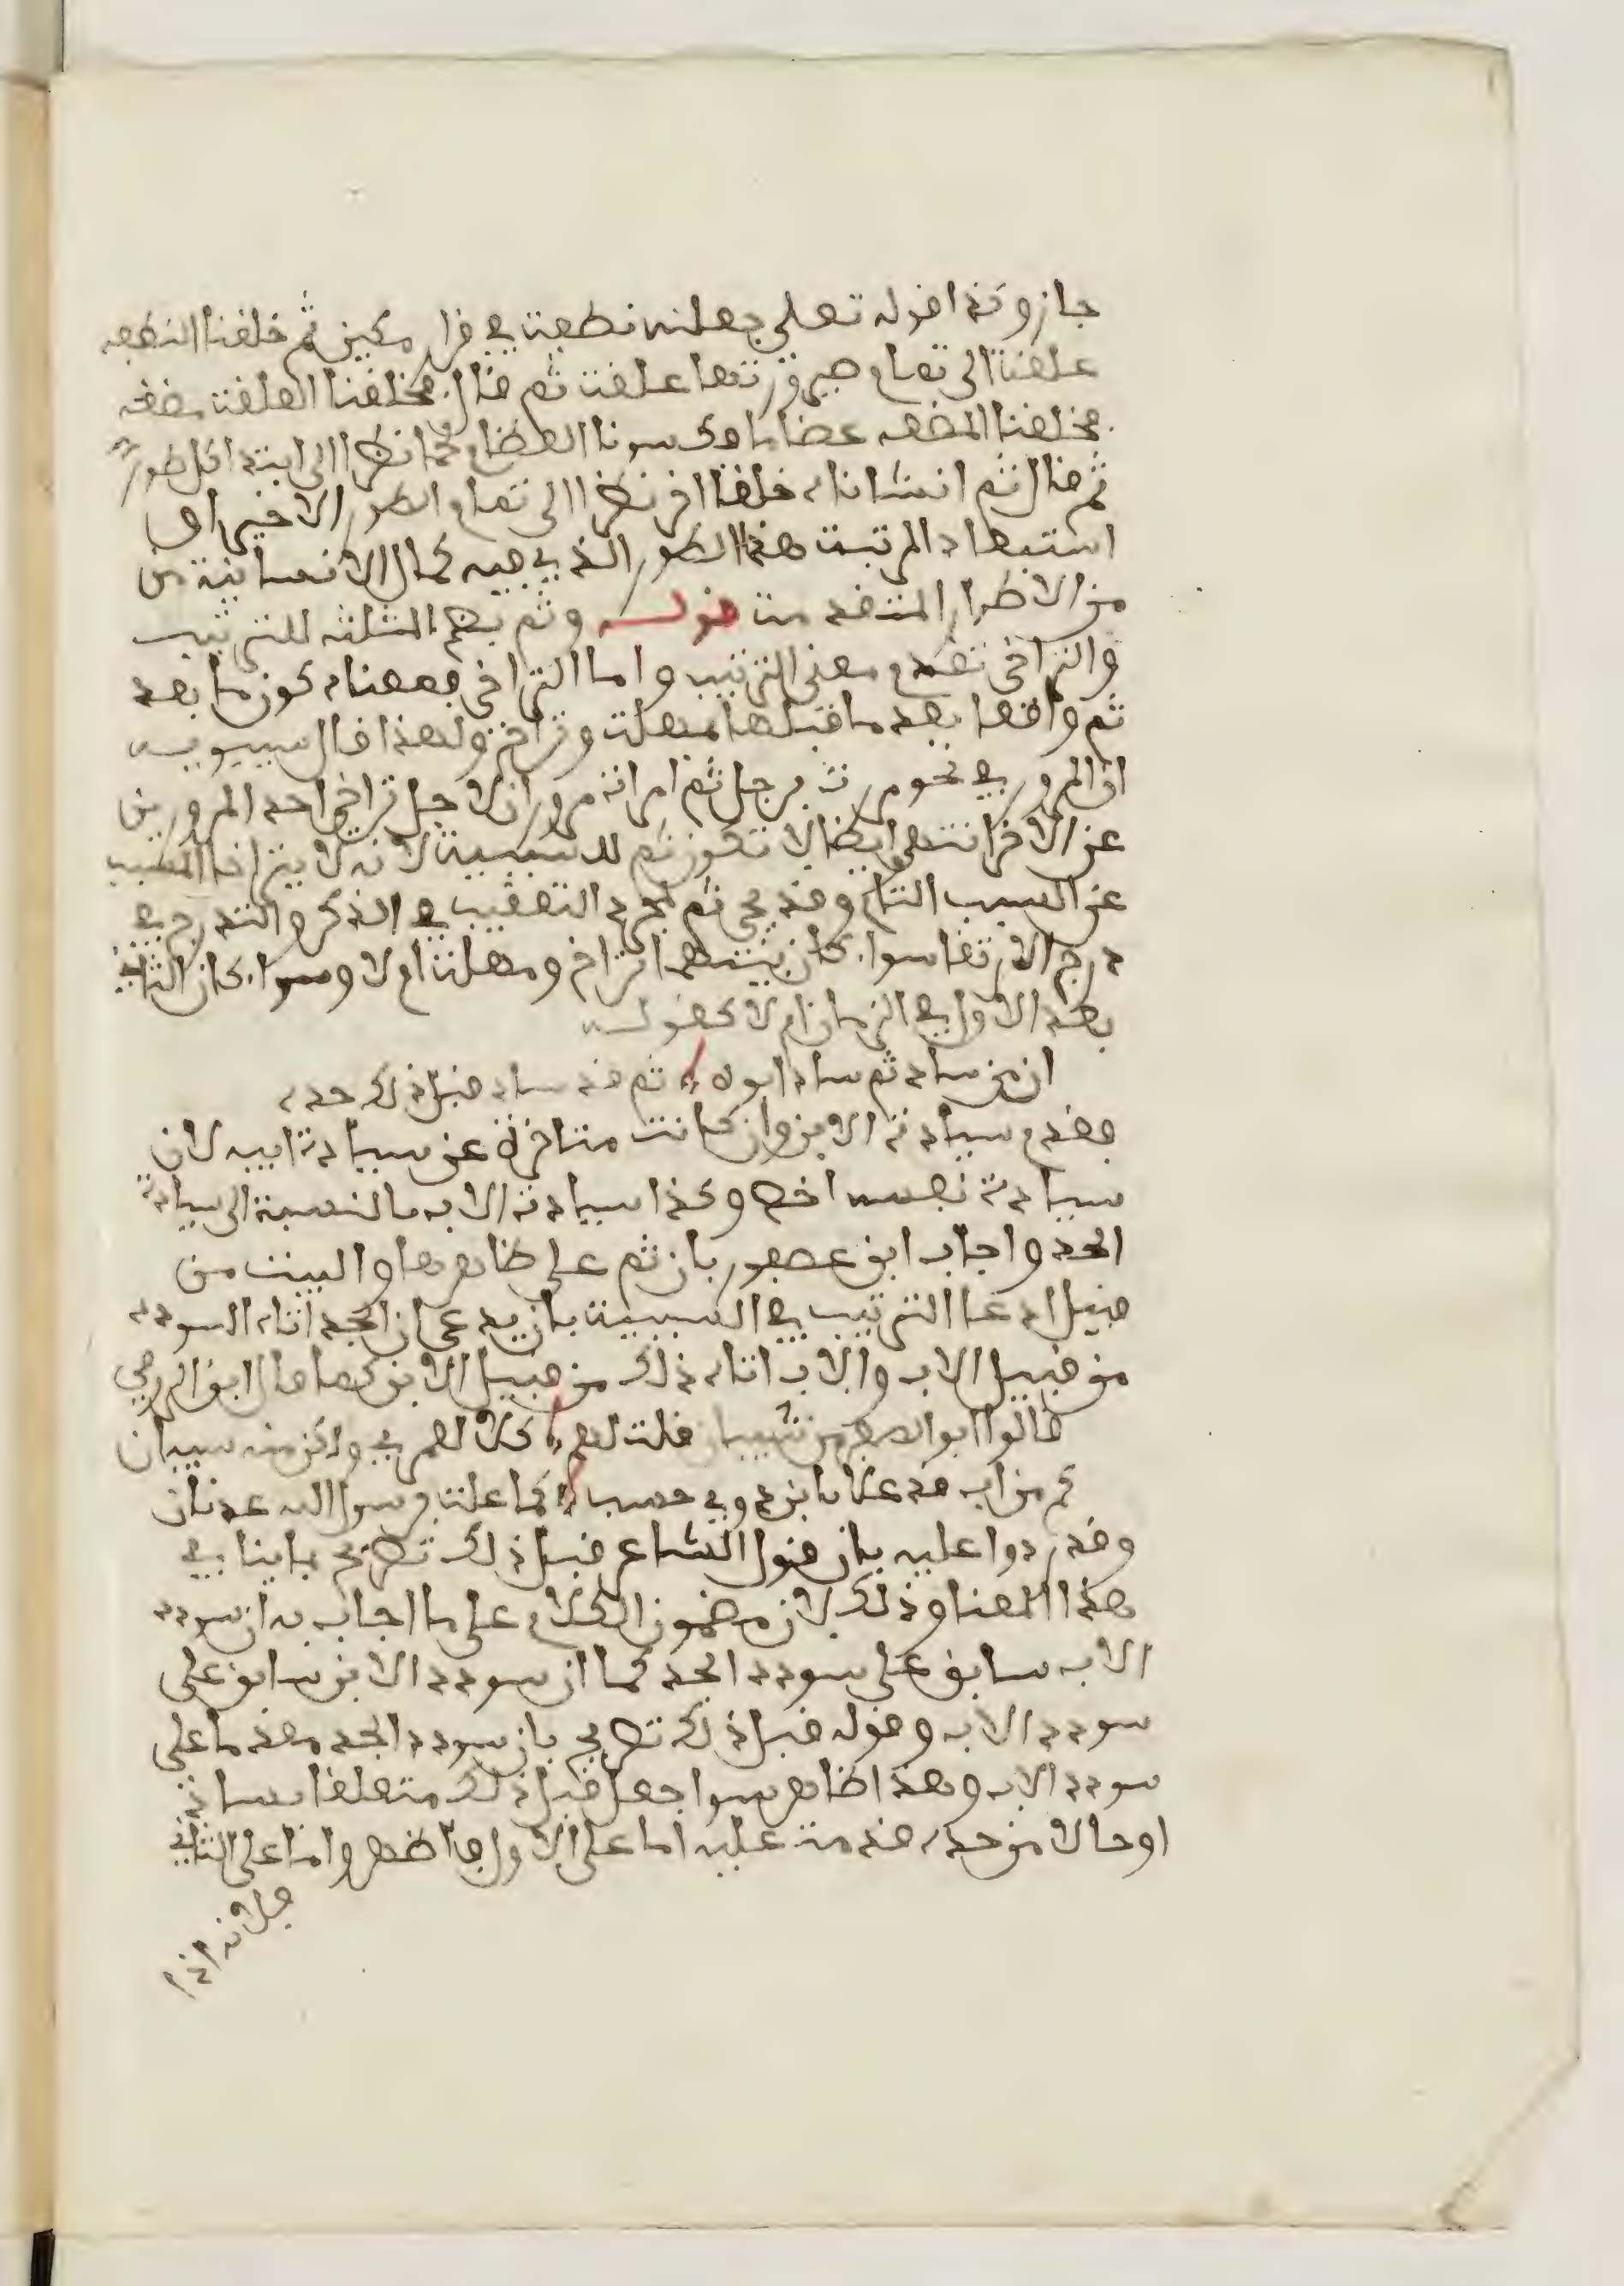 جاز وكذا قوله تعلى جعلنه نطفة في قرار مكين ثم خلقنا النطفه
علقة الى تمام صيرورتها علقة ثم قال فخلقنا العلقة مضغه
فخلقنا المضغه عضاما فكسونا العظام لحما نظرا الى ابتداء كل طور
ثم قال ثم انشاناه خلقا اخر نظرا الى تمام الطور الاخير او
استبعاد المرتبة هذا الطور الذي فيه كمال الانسانية من
من الاطوار المتقدمة قوله وثم بضم المثلثه للترتيب
والتراخى تقدم معنى الترتيب واما التراخى فمعناه كون ما بعد
ثم واقعا بعد ما قبلها بمهلة وتراخ ولهذا قال سيبويه
ان المرور في نحو مررت برجل ثم امراة مروران لاجل تراخى احد المرورين
عن الاخر انتهى وايضا لا تكون ثم للسببية لانه لا يتراخا المسبب
عن السبب التام وقد تجي ثم لمجرد التعقيب في الذكر والتدرج في
درج الارتقا سوا كان بينهما تراخ ومهلة ام لا وسوا كان الثاني
بعد الاول في الزمان ام لا كقوله
ان من ساد ثم ساد ابوه ثم قد ساد قبل ذلك جده
فقدم سيادة الابن وان كانت متاخرة عن سيادة ابيه لان
سيادة نفسه اخص وكذا سيادة الاب بالنسبة الى سيادة
الجد واجاب ابن عصفور بان ثم على ظاهرها والبيت من
قبيل ادعا الترتيب في السببية بان يدعى ان الجد اتاه السودد
من قبيل الاب والاب اتاه ذلك من قبيل الابن كما قال ابن الرومي
قالوا ابو الصقر من شيبان قلت لهم كلا لعمري ولكن منه شيبان
كم من اب قد علا بابن ذوي حسب كما علت برسول الله عدنان
وقد ردوا عليه بان قول الشاعر قبل ذلك تصريح بما ينافي
هذا المعنا وذلك لان مضمون الكلام على ما اجاب به ان سودد
الاب سابق على سودد الجد كما ان سودد الابن سابق على
سودد الاب وقوله قبل ذلك تصريح بان سودد الجد مقدما على
سودد الاب وهذا ظاهر سوا جعل قبل ذلك متعلقا بساد
او حالا من جده قدمت عليه اما على الاول فظاهر واما على الثاني
فلانه اذا